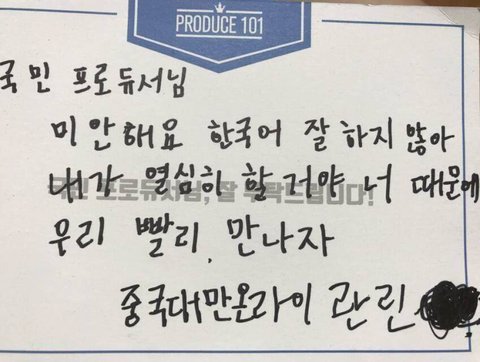 PRODUCE 101
국민 프로듀서님
미안해요 한국어 잘 하지 않아
내가 열심히 할 거야 너 때문에
국민 프로듀서님, 잘 부탁드립니다!
우리 빨리. 만나자
중국대만온라이 관린